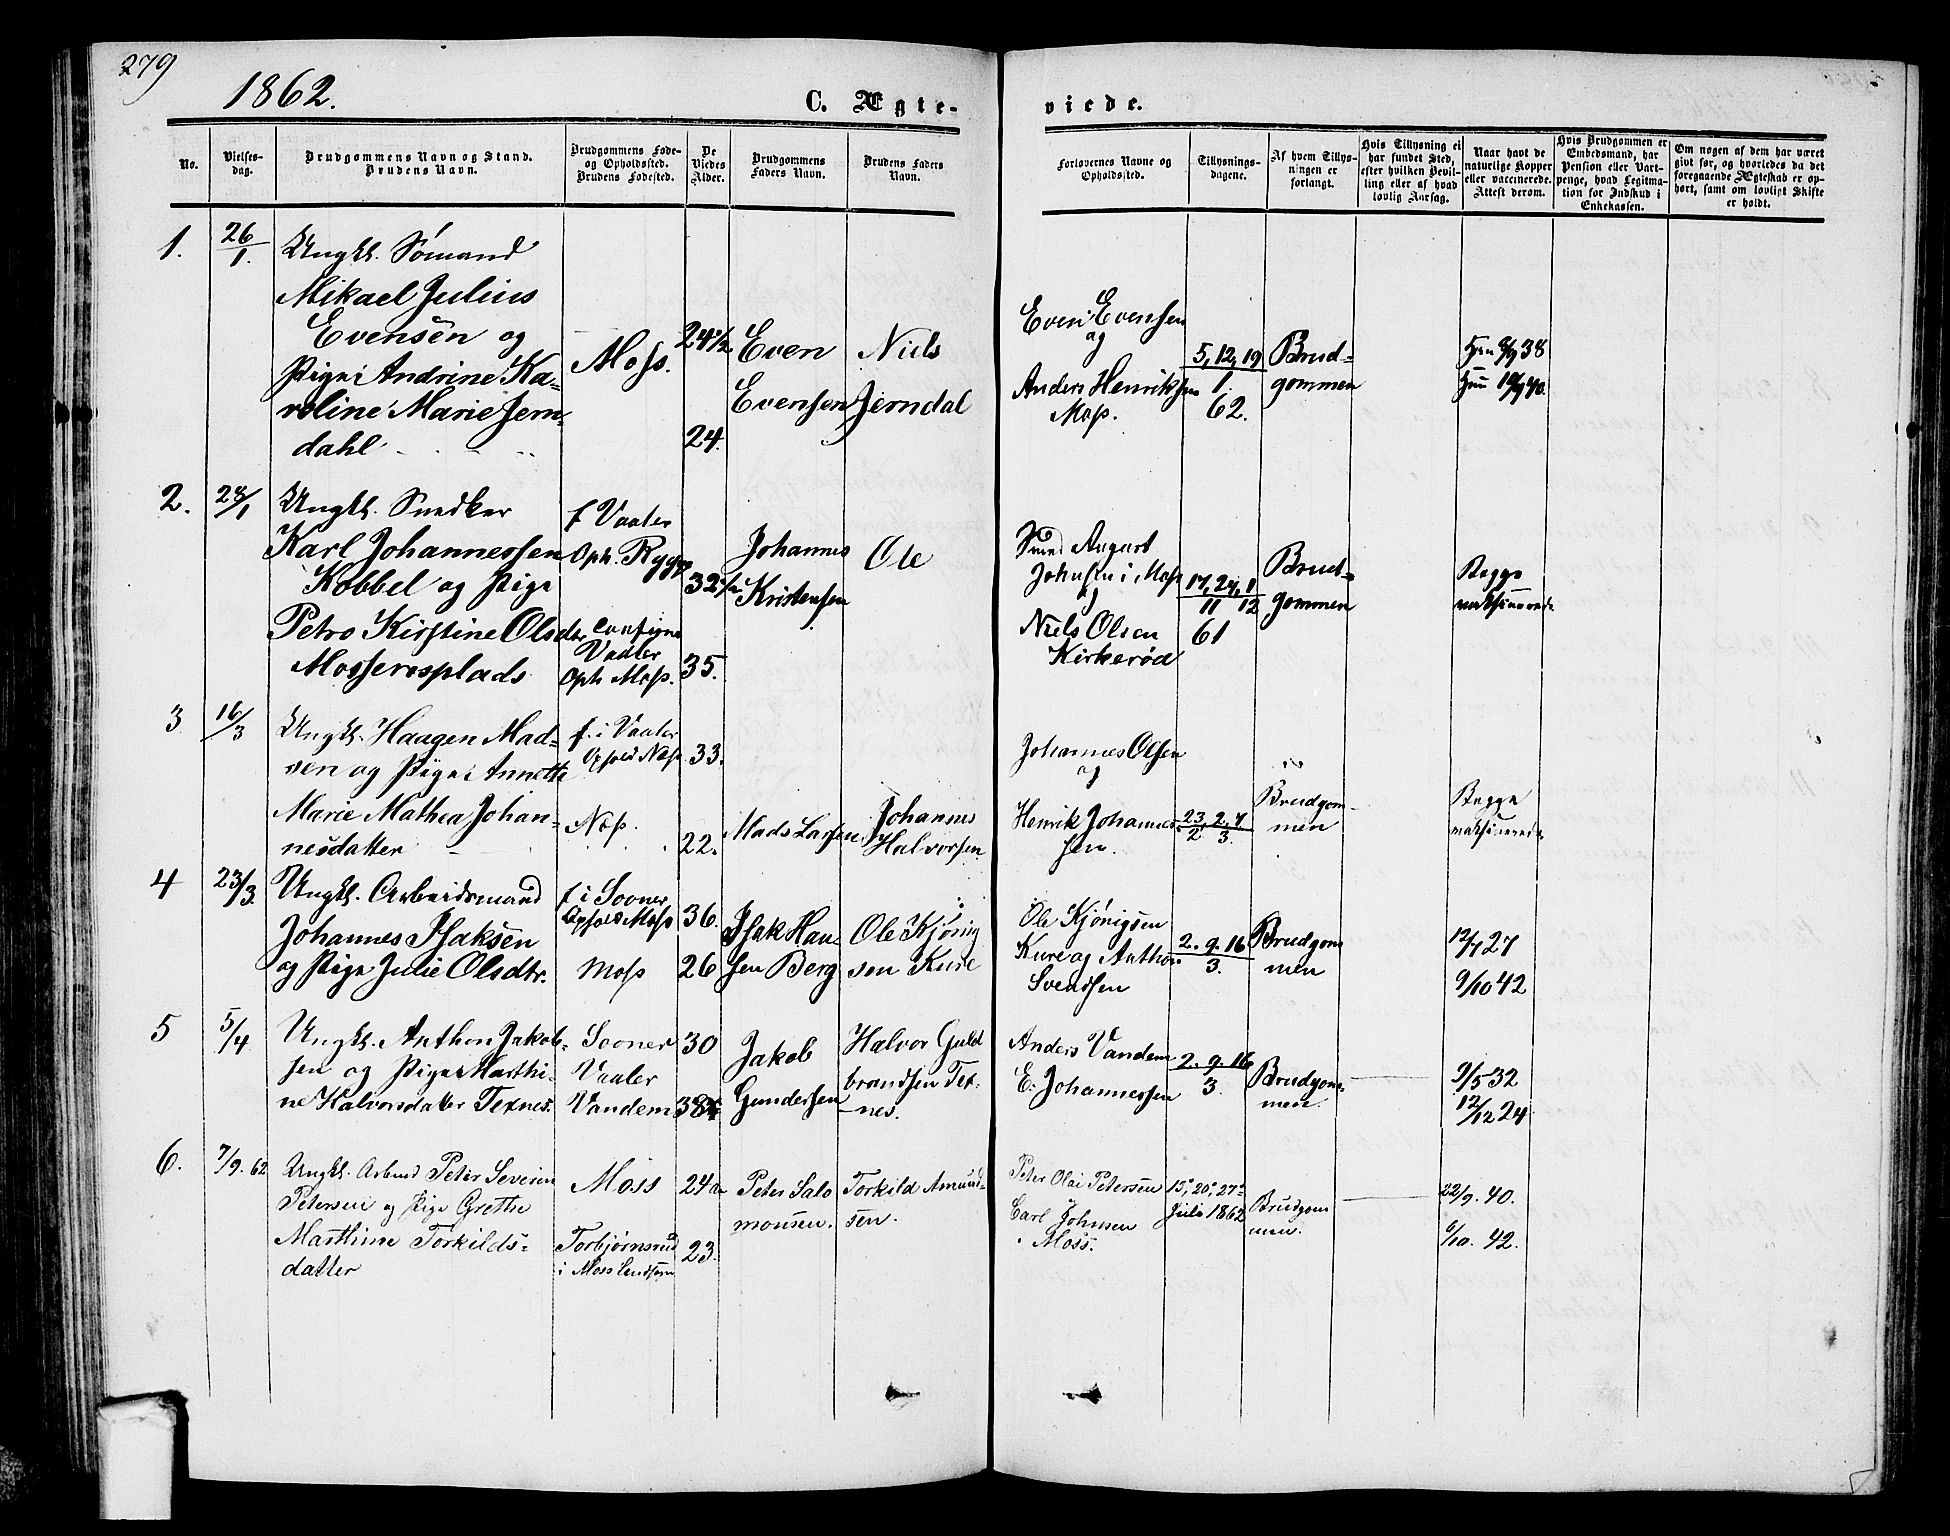 279
1862.
C. Ægte-
viede.
No.
Vielses-
dag.
Brudgommens Navn og Stand.
Brudens Navn.
Brudgommens Føde-
og Opholdssted.
Brudens Fødested.
De
Viedes
Alder.
Brudgommens
Faders Navn.
Brudens Faders
Navn.
Forlovernes Navne og
Opholdssted.
Tillysnings-
dagene.
Af hvem Tillys-
ningen er
forlangt.
Hvis Tillysning ei
har fundet Sted,
efter hvilken Bevil-
ling eller af hvad
lovlig Aarsag.
Naar havt de
naturlige Kopper
eller vaccinerede.
Attest derom.
Hvis Brudgommen er
Embedsmand, har
Pension eller Vart-
penge, hvad Legitima-
tion for Indskud i
Enkekassen.
Om nogen af dem har været
gift før, og hvorledes da det
foregaaende Ægteskab er op-
hørt, samt om lovligt Skifte
er holdt.
1.
26/1.
Ungk. Sømand
Mikael Julius
Evensen og
Pige Andrine Ka-
roline Marie Jern-
dahl
Moss.
24 1/2
24.
Even
Evensen
Niels
Jerndal
Even Evensen
og
Anders Henriksen
Moss.
5, 12, 19
1.
62.
Brud-
gommen
Han 8/9 38
Hun 40.
2.
28/1
Ungk. Snedker
Karl Johannessen
Kobbel og Pige
Petro Kirstine Olsdtr.
Mosserosplads
f Vaaler
Oph. Rygge
Vaaler
Oph Moss.
32
35.
Johannes
Kristensen
Ole
August
Johnsen i Moss
og
Niels Olsen
Kirkerød
17, 24, 1
11 12
61
Brud-
gommen
Begge
vaksinerede
3
16/3
Ungk. Haagen Mad-
sen og Pige Annette
Marie Mathea Johan-
nesdatter
f. i Vaaler
Ophold Moss
Moss.
33.
22.
Mads Larsen
Johannes
Halvorsen
Johannes Olsen
og
Henrik Johannes-
sen.
23, 2, 9
2 3.
Brudgom-
men
Begge
vaksinerede
4
23/3.
Ungk. Arbeidsmand
Johannes Isaksen
og Pige Julie Olsdtr.
f i Sooner
Ophold Moss
Moss
36.
26
Isak Han-
sen Berg
Ole Kjönig
sen Kure
Ole Kjönigsen
Kure og Anthon
Svendsen
2. 9. 16
3.
Brudgom
men
12/7 27
9/10 42
5
5/4
Ungk. Anthon Jakob-
sen og Pige Marthi-
ne Halvorsdatter Texnes.
Sooner
Vaaler
Vandem
30
38
Jakob
Gundersen
Halvor Guld
brandsen Tex-
nes.
Anders Vandem
E. Johannessen
2. 9. 16
3.
Brudgom-
men.
9/5 32
12/12 24
6.
7/9. 62
Ungk. Arbmd Peter Severin
Petersen og Pige Grethe
Marthine Torkilds-
datter
Moss
Torbjørnsrud
i Moss landsogn
24
23.
Peter Salo
monsen.
Torkild Amund-
sen.
Peter Olai Petersen
Carl Johnsen
Moss.
13, 20, 27
Juli 1862
Brudgom
men.
22/9. 40.
6/10. 42.